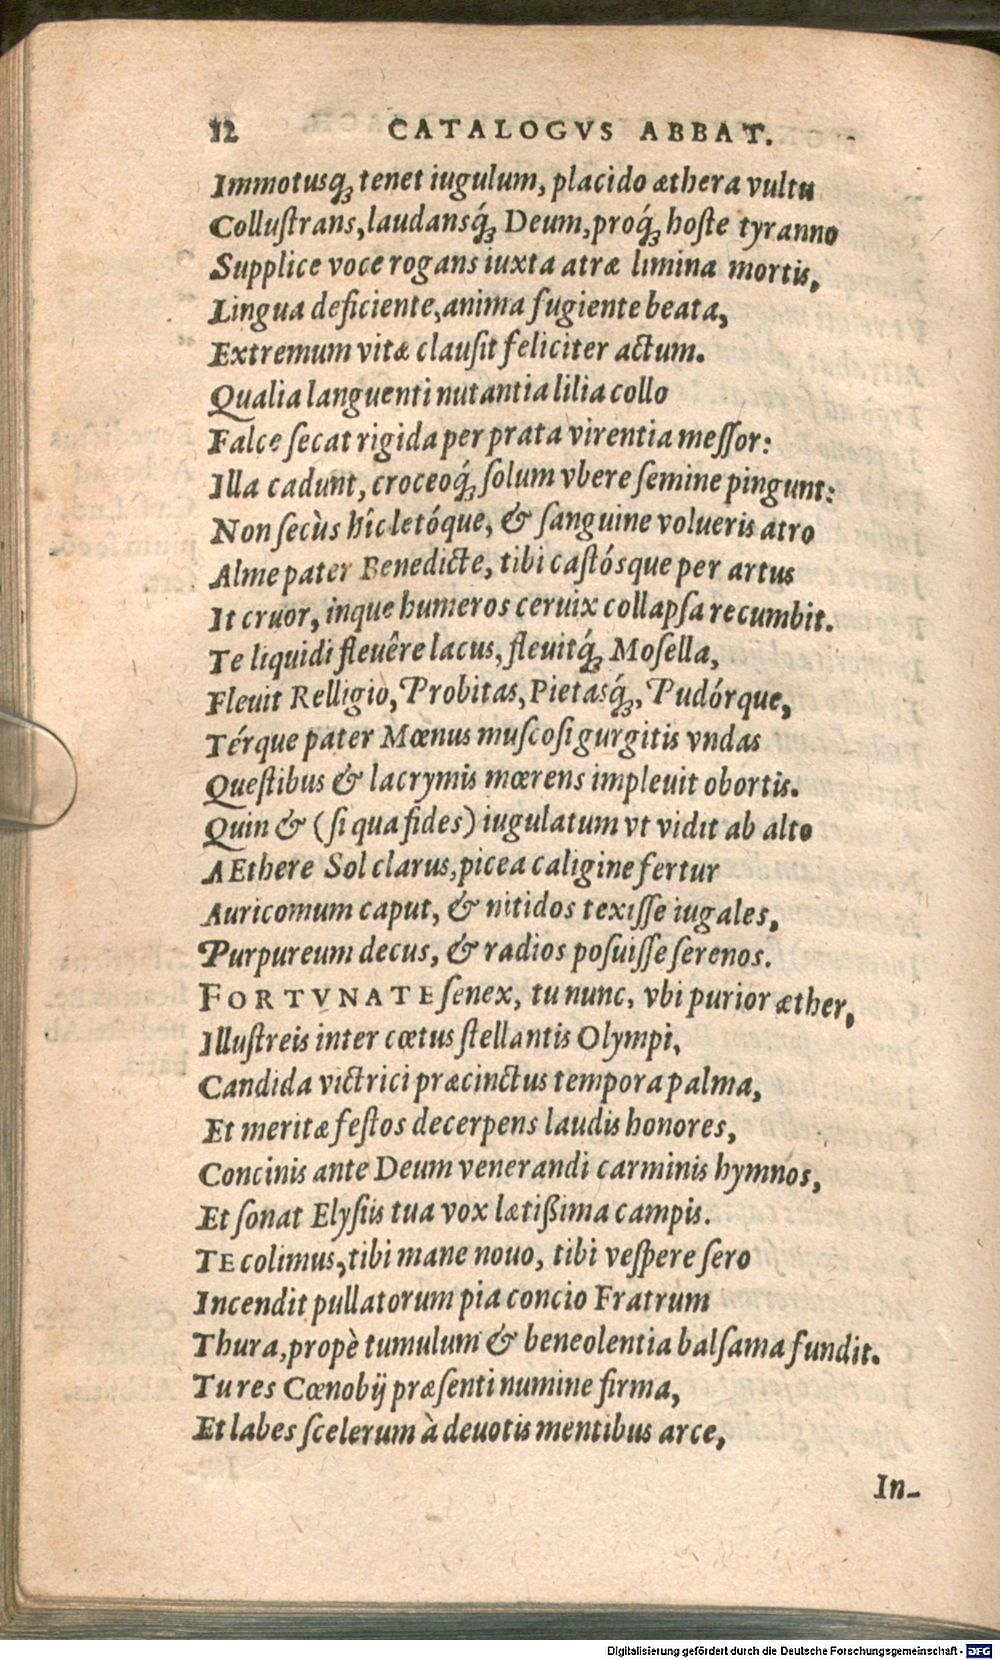 12 CATALOGVS ABBAT.
Immotusq́ꝫ tenet iugulum, placido æthera vultu
Colluſtrans, laudansq́ꝫ Deum, proq́ꝫ hoſte tyranno
Supplice voce rogans iuxta atræ limina mortis,
Lingua deficiente, anima fugiente beata,
Extremum vitæ clauſit feliciter actum.
Qualia languenti nutantia lilia collo
Falce ſecat rigida per prata virentia meſſor:
Illa cadunt, croceoq́ꝫ ſolum vbere ſemine pingunt:
Non ſecùs hîc letóque, & ſanguine volueris atro
Alme pater Benedicte, tibi caſtósque per artus
It cruor, inque humeros ceruix collapſa recumbit.
Te liquidi fleuêre lacus, fleuitq́ꝫ Moſella,
Fleuit Relligio, Probitas, Pietasq́ꝫ, Pudórque,
Térque pater Mœnus muſcoſi gurgitis vndas
Queſtibus & lacrymis mœrens impleuit obortis.
Quin & (ſi qua fides) iugulatum vt vidit ab alto
AEthere Sol clarus, picea caligine fertur
Auricomum caput, & nitidos texiſſe iugales,
Purpureum decus, & radios poſuiſſe ſerenos.
FORTVNATE ſenex, tu nunc, vbi purior æther,
Illuſtreis inter cœtus ſtellantis Olympi,
Candida victrici præcinctus tempora palma,
Et meritæ feſtos decerpens laudis honores,
Concinis ante Deum venerandi carminis hymnos,
Et ſonat Elyſiis tua vox lætißima campis.
TE colimus, tibi mane nouo, tibi veſpere ſero
Incendit pullatorum pia concio Fratrum
Thura, propè tumulum & beneolentia balſama fundit.
Tu res Cœnobij præſenti numine firma,
Et labes ſcelerum à deuotis mentibus arce,
In-
Digitalisierung gefördert durch die Deutsche Forschungsgemeinschaft - DFG